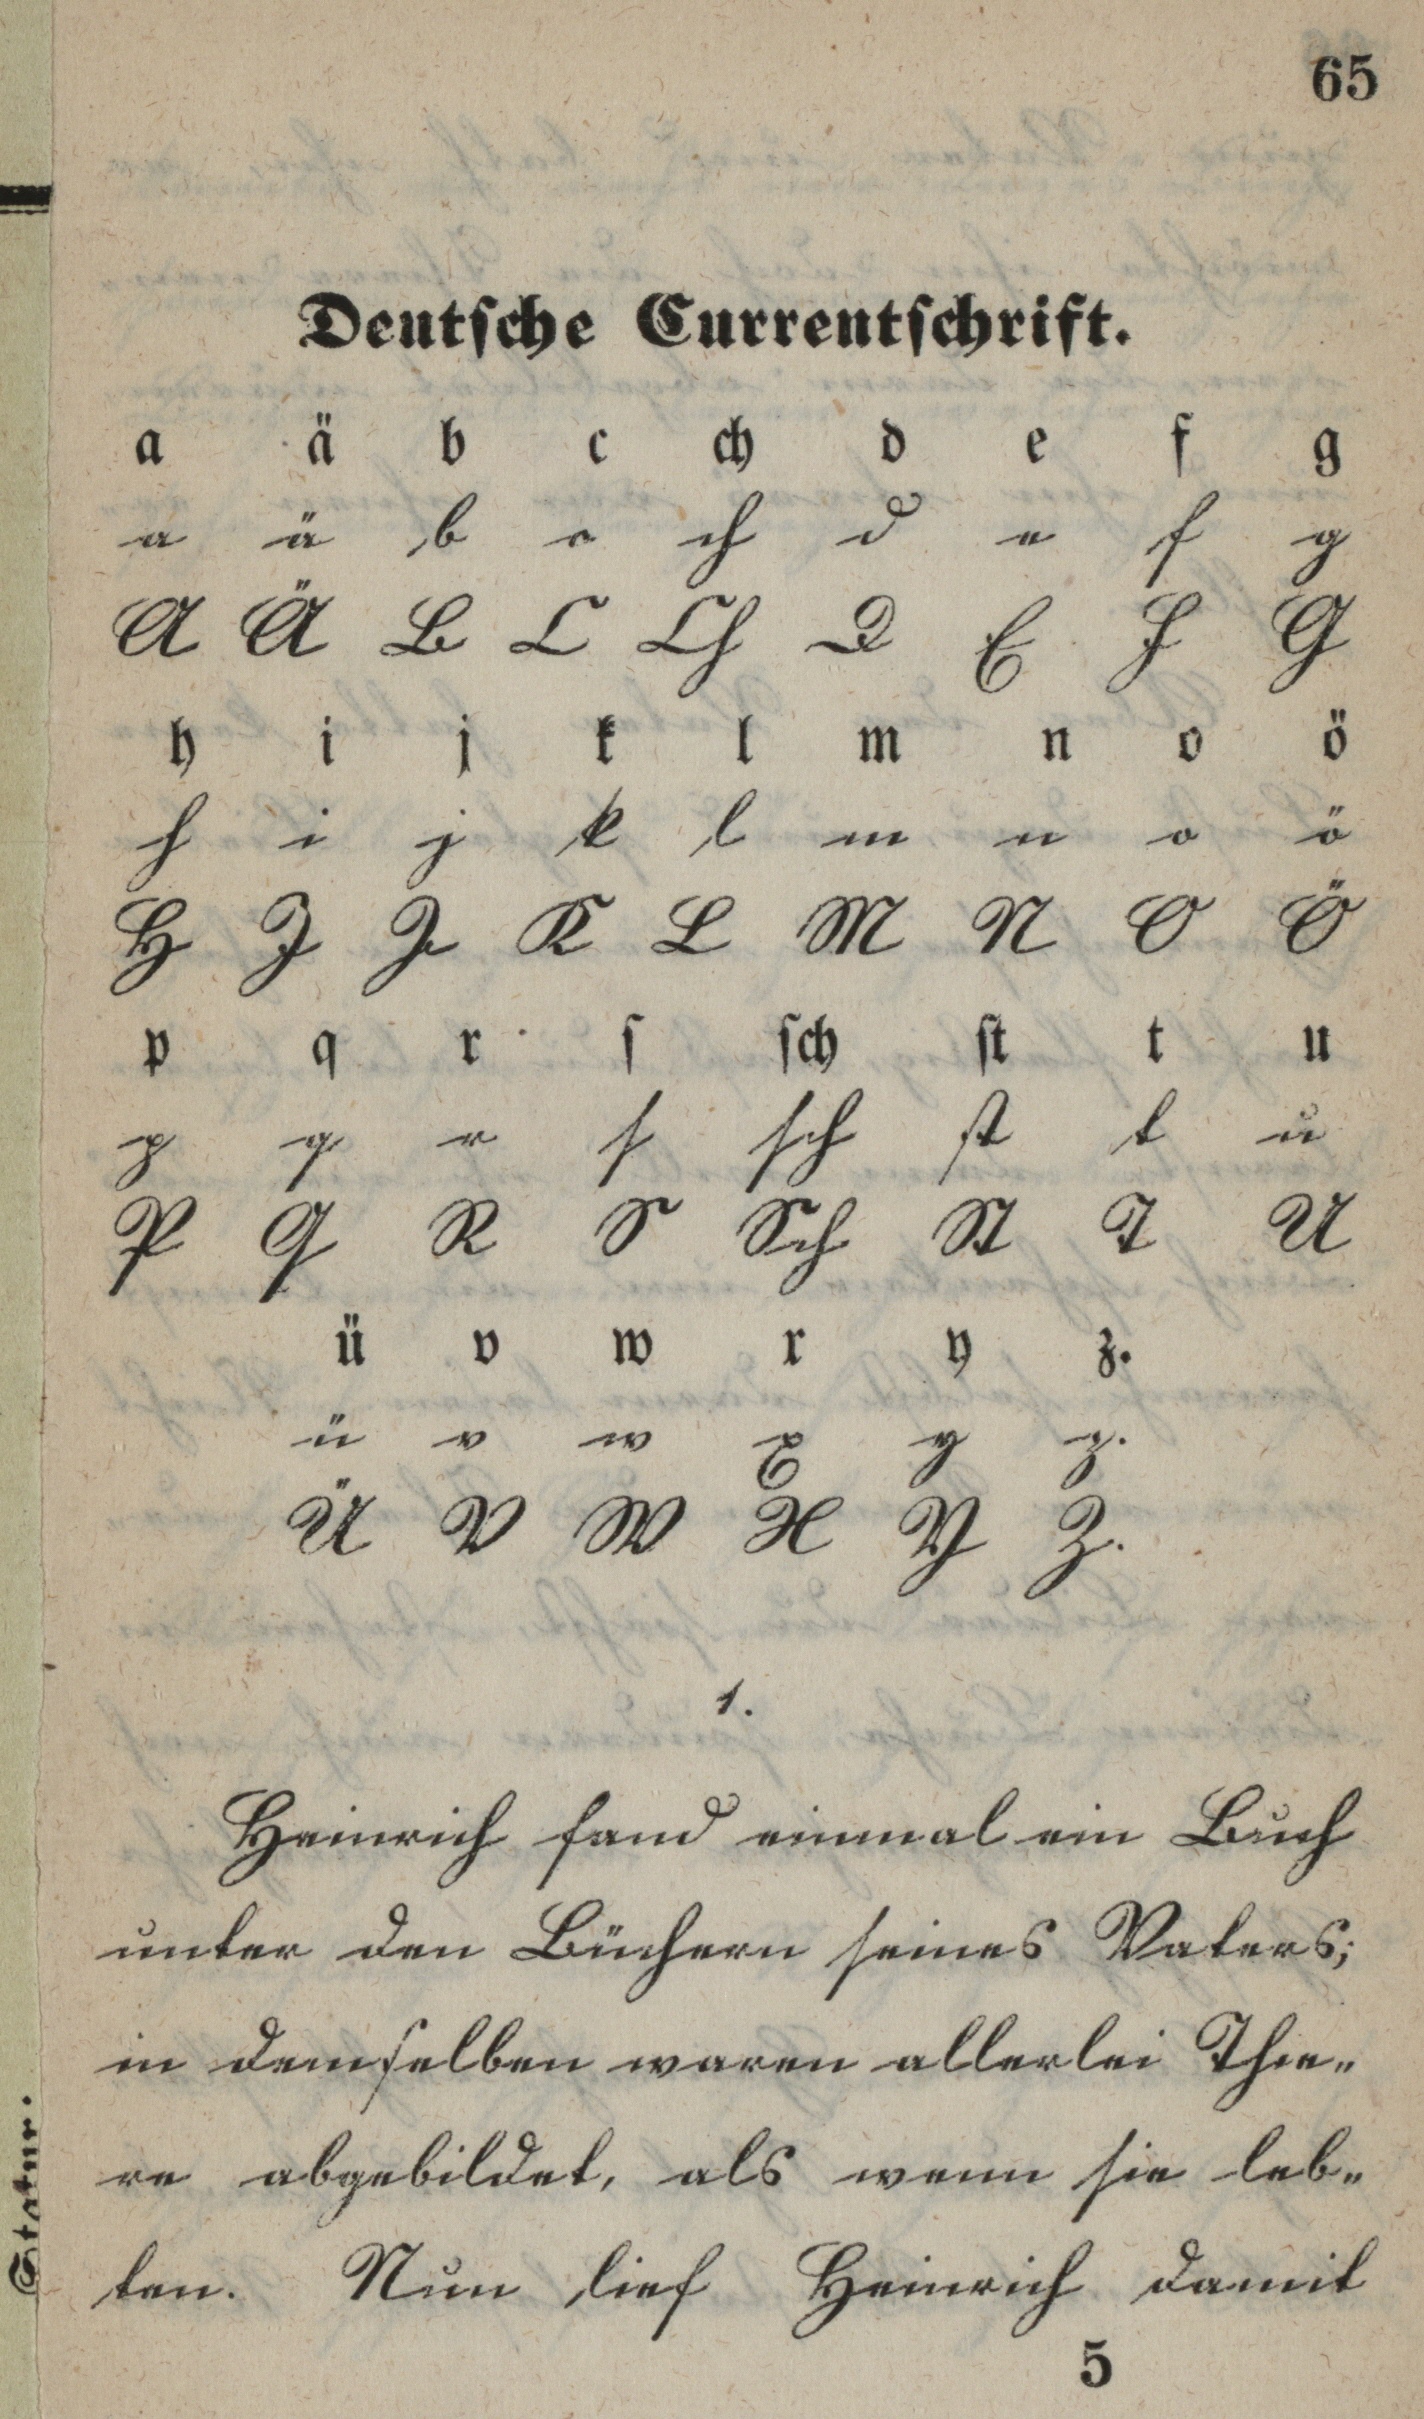 65
Deutſche Currentſchrift.
a ä b c ch d e f g
a ä b c ch d e f g
A Ä B C Ch D E F G
h i j k l m n o ö
h i j k l m n o ö
H I J K L M N O Ö
p q r ſ ſch ſt t u
p q r ſ ſch ſt t u
P Q R S Sch St T U
ü v w x y z.
ü v w x y z.
Ü V W X Y Z.
1.
Heinrich fand einmal ein Buch
unter den Büchern ſeines Vaters;
in demſelben waren allerlei Thie-
re abgebildet, als wenn ſie leb-
ten. Nun lief Heinrich damit
5
Statur.